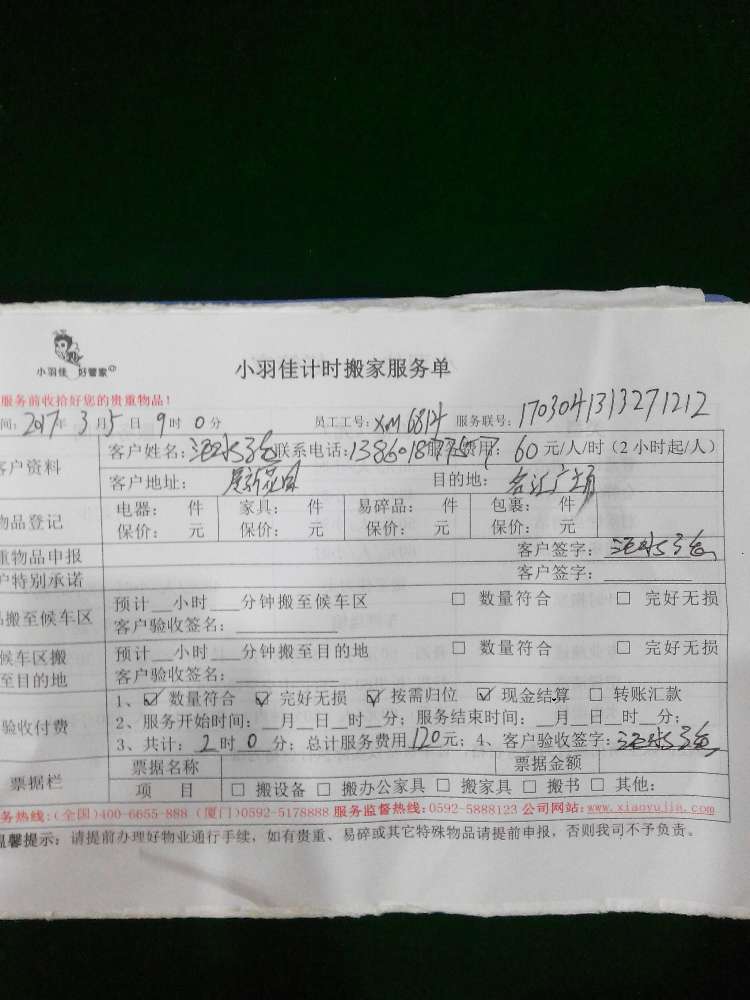 小羽佳 好管家
小羽佳计时搬家服务单
服务前收拾好您的贵重物品!
间: 2017年 3月5日 9时 0分 员工工号: XM6814 服务联号: 170304131327 1212
客户资料 客户姓名: 联系电话: 服务费用: 60元/人/时 (2小时起/人)
客户地址: 目的地:
物品登记 电器: 件 家具: 件 易碎品: 件 包裹: 件
保价: 元 保价: 元 保价: 元 保价: 元
重物品申报 客户签字:
户特别承诺 客户签字:
品搬至候车区 预计__小时___分钟搬至候车区 □ 数量符合 □ 完好无损
客户验收签名:
候车区搬至目的地 预计__小时___分钟搬至目的地 □ 数量符合 □ 完好无损
客户验收签名:
验收付费 1、☑ 数量符合 ☑ 完好无损 ☑ 按需归位 ☑ 现金结算 □ 转账汇款
2、服务开始时间: __月__日__时__分; 服务结束时间: __月__日__时__分;
3、共计: 2时 0分; 总计服务费用120元; 4、客户验收签字:
票据栏 票据名称 票据金额
项 目 □ 搬设备 □ 搬办公家具 □ 搬家具 □ 搬书 □ 其他:
务热线: (全国)400-6655-888 (厦门)0592-5178888 服务监督热线: 0592-5888123 公司网站: www.xiaoyujia.com
温馨提示: 请提前办理好物业通行手续, 如有贵重、易碎或其它特殊物品请提前申报, 否则我司不予负责。